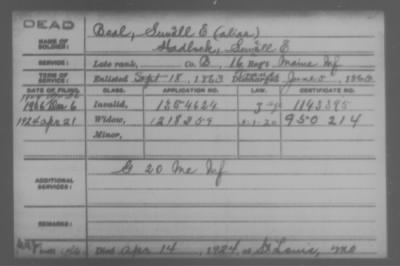 DEAD
NAME OF SOLDIER: Beal, Sewell E (alias)
Hadlock, Sewell E
SERVICE: Late rank, , Co. B, 16 Reg't Maine Inf
TERM OF SERVICE: Enlisted Sept 18, 1863 Discharged June 5, 1865
DATE OF FILING. CLASS. APPLICATION NO. LAW. CERTIFICATE NO.
1906 6 Invalid, 1354624 1143395
1924 Apr 21 Widow, 1218209 950214
Minor,
ADDITIONAL SERVICES: G 20 Me Inf
REMARKS:
Died Apr 14, 1924, at St Louis, Mo